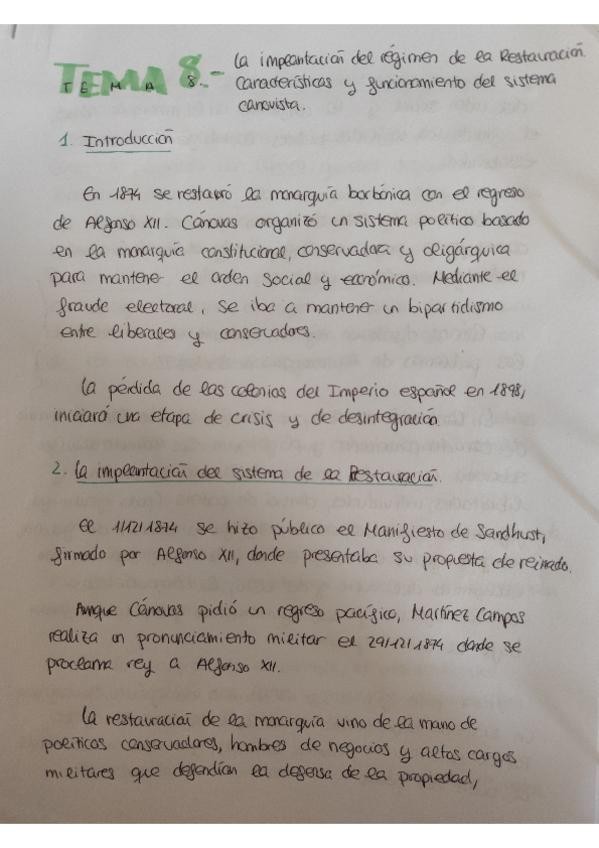 TEMA 8.- La implantación del régimen de la Restauración.
Características y funcionamiento del sistema
canovista.
1. Introducción
En 1874 se restauró la monarquía borbónica con el regreso
de Alfonso XII. Cánovas organizó un sistema político basado
en la monarquía constitucional, conservadora y oligárquica
para mantener el orden social y económico. Mediante el
fraude electoral, se iba a mantener un bipartidismo
entre liberales y conservadores.
La pérdida de las colonias del Imperio español en 1898,
iniciará una etapa de crisis y de desintegración.
2. La implantación del sistema de la Restauración.
El 1/12/1874 se hizo público el Manifiesto de Sandhust,
firmado por Alfonso XII, donde presentaba su propuesta de reinado.
Aunque Cánovas pidió un regreso pacífico, Martínez Campos
realiza un pronunciamiento militar el 29/12/1874 donde se
proclama rey a Alfonso XII.
La restauración de la monarquía vino de la mano de
políticos conservadores, hombres de negocios y altos cargos
militares que defendían la defensa de la propiedad,